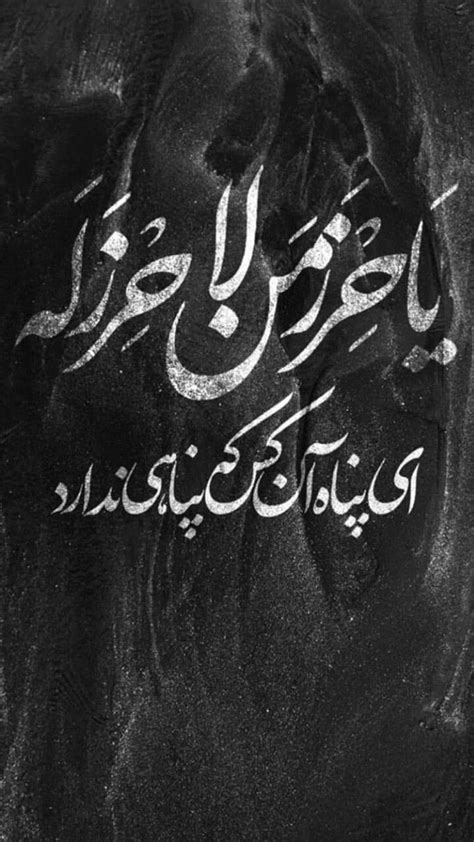 یَا حِرْزَ مَن لا حِرْزَ لَه
ای پناه آن کس که پناهی ندارد